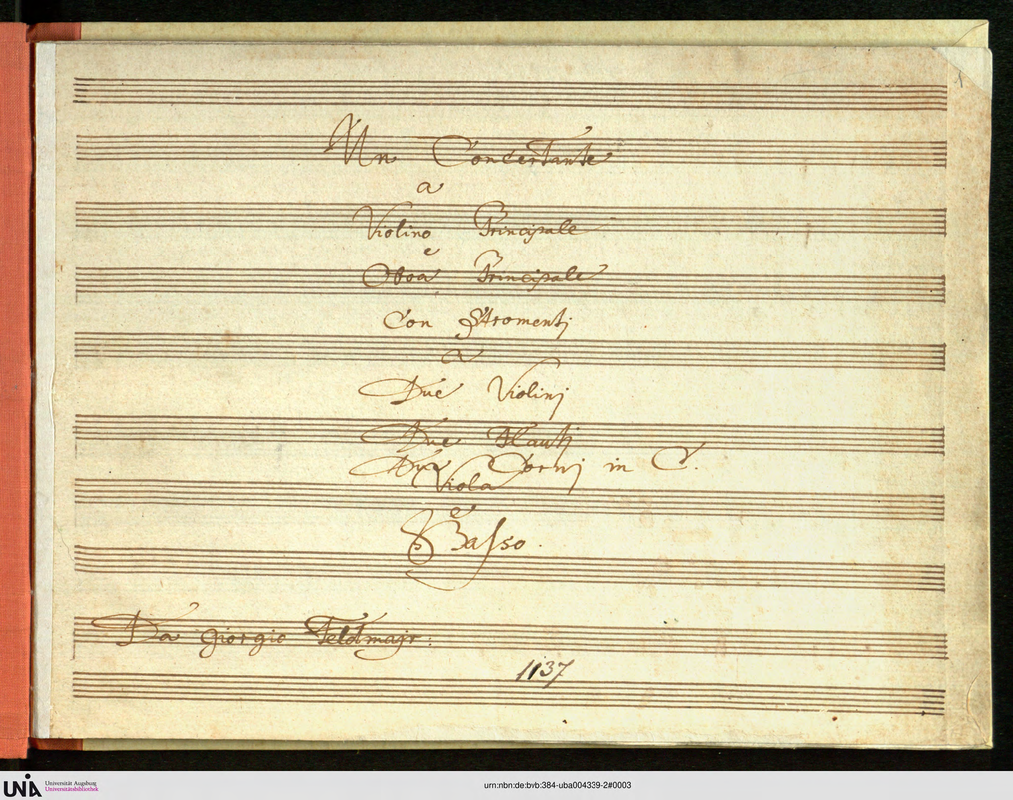 1
Un Concertante
a
Violino Principale
e
Oboa Principale
Con Stromentj
a
Due Violinj
Due Flautj
Due Cornj in C.
Viola
e
Basso.
Da Giorgio Feldmajr:
1137
UNIA Universität Augsburg
Universitätsbibliothek
urn:nbn:de:bvb:384-uba004339-2#0003